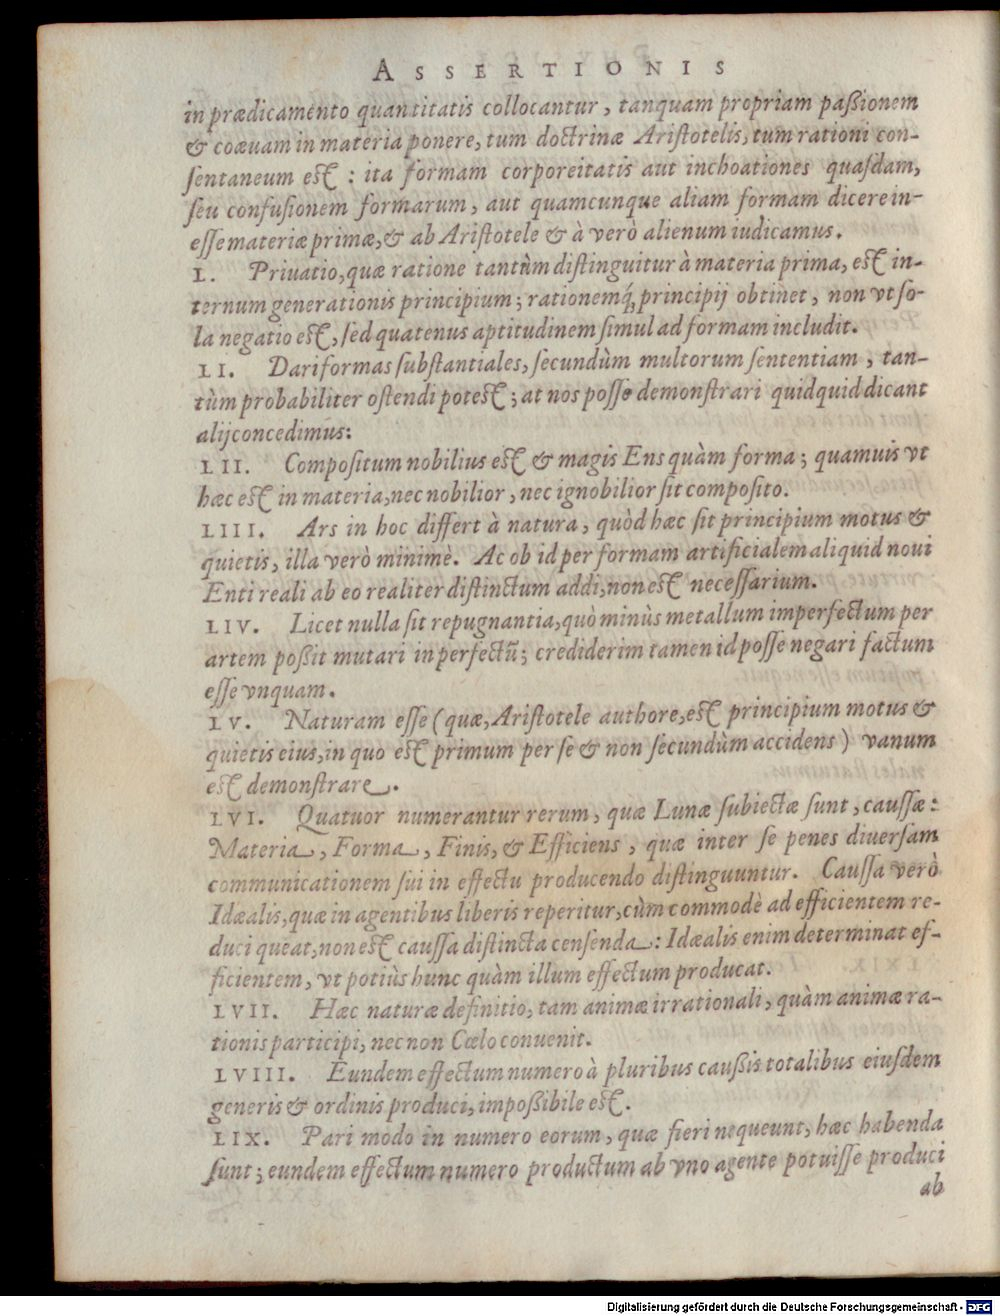 ASSERTIONIS
in prædicamento quantitatis collocantur, tanquam propriam paßionem
& coæuam in materia ponere, tum doctrinæ Aristotelis, tum rationi con-
sentaneum est : ita formam corporeitatis aut inchoationes quasdam,
seu confusionem formarum, aut quamcunque aliam formam dicere in-
esse materiæ primæ, & ab Aristotele & à verò alienum iudicamus.
L. Priuatio, quæ ratione tantùm distinguitur à materia prima, est in-
ternum generationis principium; rationemq́; principij obtinet, non vt so-
la negatio est, sed quatenus aptitudinem simul ad formam includit.
LI. Dari formas substantiales, secundùm multorum sententiam, tan-
tùm probabiliter ostendi potest; at nos posse demonstrari quidquid dicant
alij concedimus:
LII. Compositum nobilius est & magis Ens quàm forma; quamuis vt
hæc est in materia, nec nobilior, nec ignobilior sit composito.
LIII. Ars in hoc differt à natura, quòd hæc sit principium motus &
quietis, illa verò minimè. Ac ob id per formam artificialem aliquid noui
Enti reali ab eo realiter distinctum addi, non est necessarium.
LIV. Licet nulla sit repugnantia, quò minùs metallum imperfectum per
artem poßit mutari in perfectũ; crediderim tamen id posse negari factum
esse vnquam.
LV. Naturam esse (quæ, Aristotele authore, est principium motus &
quietis eius, in quo est primum per se & non secundùm accidens) vanum
est demonstrare.
LVI. Quatuor numerantur rerum, quæ Lunæ subiectæ sunt, caussæ:
Materia, Forma, Finis, & Efficiens, quæ inter se penes diuersam
communicationem sui in effectu producendo distinguuntur. Caussa verò
Idæalis, quæ in agentibus liberis reperitur, cùm commodè ad efficientem re-
duci queat, non est caussa distincta censenda: Idæalis enim determinat ef-
ficientem, vt potiùs hunc quàm illum effectum producat.
LVII. Hæc naturæ definitio, tam animæ irrationali, quàm animæ ra-
tionis participi, nec non Cœlo conuenit.
LVIII. Eundem effectum numero à pluribus caußis totalibus eiusdem
generis & ordinis produci, impoßibile est.
LIX. Pari modo in numero eorum, quæ fieri nequeunt, hæc habenda
sunt; eundem effectum numero productum ab vno agente potuisse produci
ab
Digitalisierung gefördert durch die Deutsche Forschungsgemeinschaft - DFG